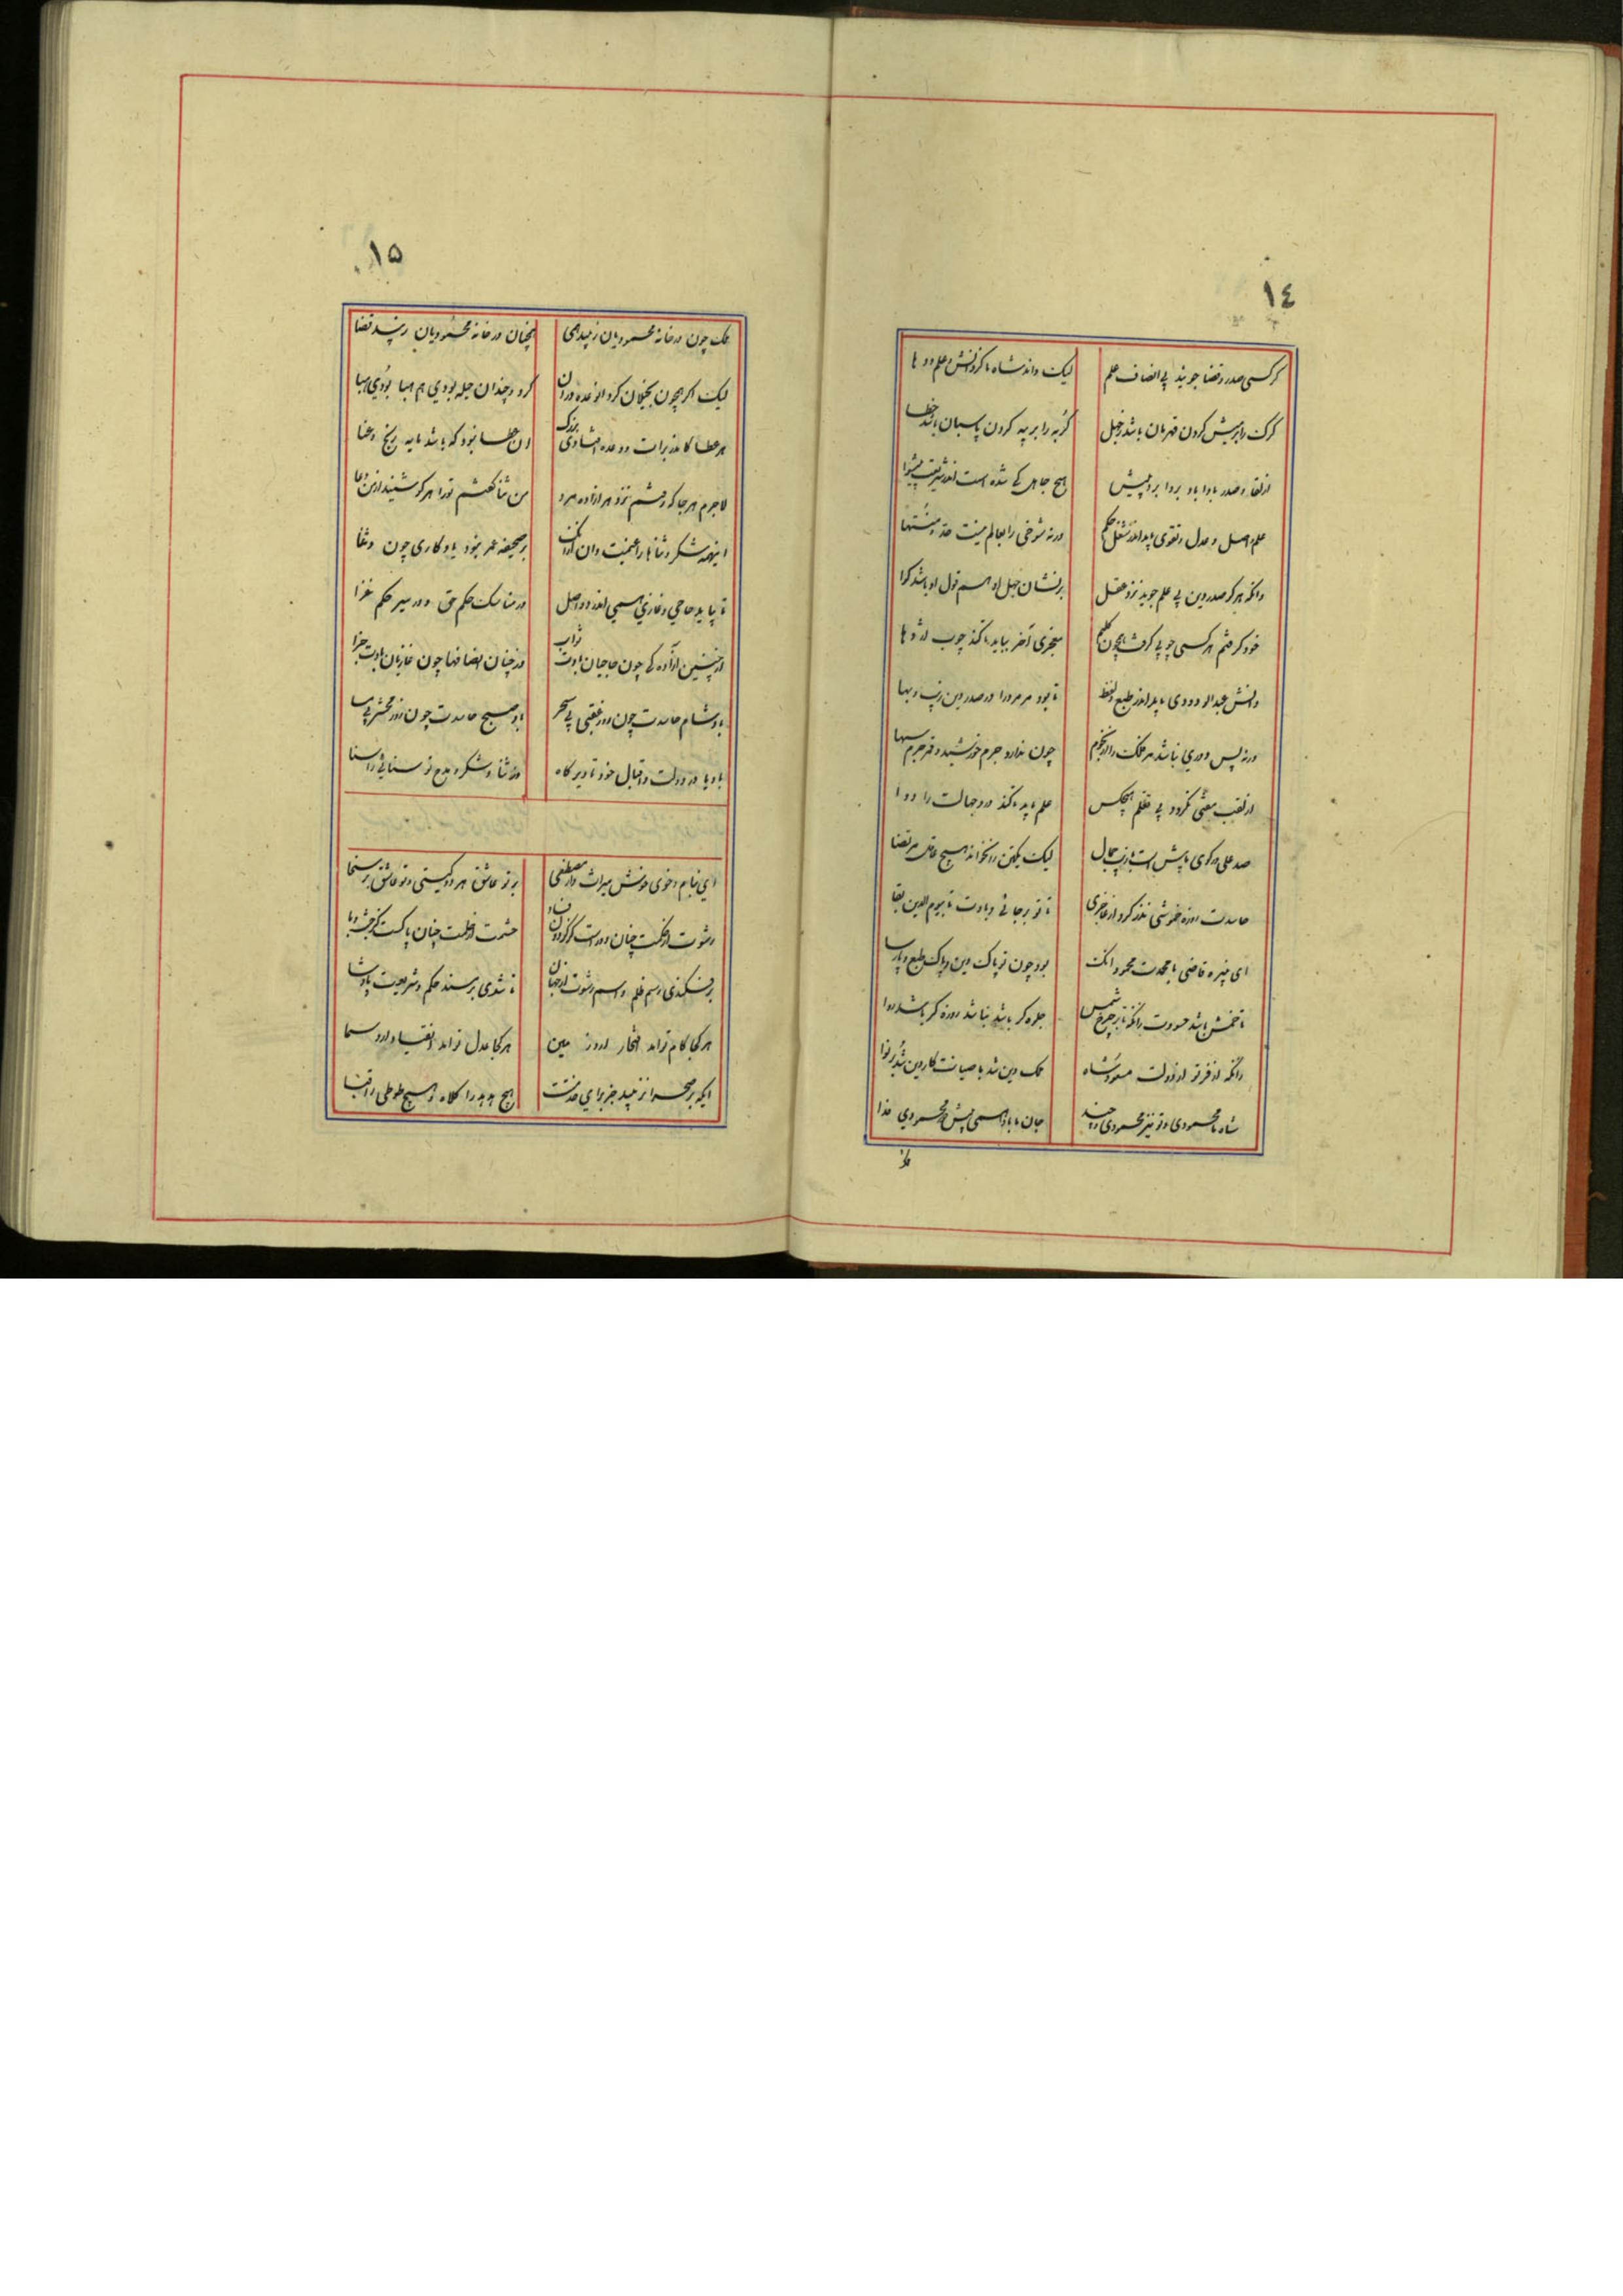 ١٤
هر کسی صدر و قضا جویند بی انصاف علم لیک داند شاه ما کز دانش و علم و دها
کرک را بر میش کردن قهرمان باشد ز جهل کربه را بر پیه کردن پاسبان باشد خطا
از لقا و صدر بادا باد بردا برد پیش هیچ جاهل کی شده است اندر شریعت پیشوا
علم و اصل و عدل و تقوی باید اندر شغل حکم ورنه شوخی را بعالم نیست حد و منتها
وانکه هر کو صدر دین بی علم جوید نزد عقل بر نشان جهل او هم قول او باشد کوا
خود کرفتم هر کسی چوبی کرفت همچون کلیم معجزی آخر بباید تا کند چوب اژدها
دانش عبدالودودی باید اندر طبع و لفظ تا بود مر مرد را در صدر دین زیب و بها
ورنه پس دوری نباشد مر فلک را از نجوم چون ندارد جرم خورشید و قمر جرم سها
از لقب مفتی نکردد بی تعلم هیچکس علم باید تا کند درد جهالت را دوا
صد علی در کوی ما بیش است با زیب و جمال لیک یکتن را نخواند هیچ عاقل مرتضا
حاسدت روزه خموشی نذر کرد از عاجزی تا تو بر جائی و بادت تا بیوم الدین بقا
ای نبیره قاضی با محمدت محمود انک بود چون تو پاک دین و پاک طبع و پارسا
تا خمش باشد حسودت زانکه تا بر چرخ شمس جلوه کر باشد نباشد روزه کر باشد روا
زانکه از فر تو از دولت مسعود شاه ملک دین شد با صیانت کار دین شد بر نوا
شاه ما محمودی و تو نیز محمودی و چند جان ما بادا همی پیش دو محمودی فدا
١٥
ملک چون در خانه محمودیان زیبد همی همچنان در خانه محمودیان زیبد قضا
لیک اکر همچون بخیلان کرد وعده دون کرد و چندان حیله بودی هم هبا بودی هبا
هر عطا کاندر برات وعده افتاد ای بزرک آن عطا نبود که باشد مایه رنج و عنا
لاجرم هر جا که رفتم نزد هر آزاده مرد من ثنا کفتم ترا هر کو شنید از من دعا
اینهمه شکر و ثناها را غنیمت دان بر صحیفه عمر نبود یادکاری چون دعا
تا بیابد حاجی و غازی همی اندر دو اصل در مناسک حکم حق و در سیر حکم غزا
در چنین آزاده کی چون حاجیان بادت ثواب در چنان انصافها چون غازیان بادت جزا
باد شام حاسدت چون روز عقبی بی سحر باد صبح حاسدت چون روز محشر بی مسا
بادیا در دولت و اقبال خود تا دیر کاه وز ثنا و شکر و مدح تو سنائی را سنا
ای بنام و خوی خوش میراث دار مصطفی بر تو عاشق هر دو کیتی و تو عاشق بر سخا
رشوت از حکمت چنان دور است کز کردون فساد حشمت از حلمت چنان پاکست کز جنت وبا
بر فکندی رسم ظلم و اسم رشوت از جهان تا شدی بر مسند حکم و شریعت پادشا
هر کجا کام تو آید افتخار آرد زمین هر کجا عدل تو آید انقیاد آرد سما
ایکه بر صحرا نروید جز برای خدمتت هیچ هدهد را کلاه و هیچ طوطی را قبا